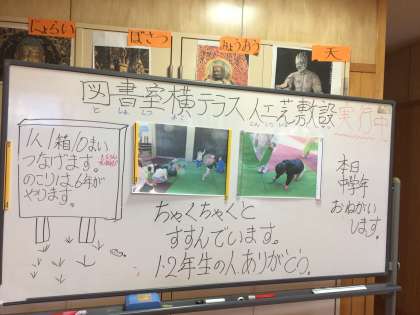 にょらい
ぼさつ
みょうおう
天
図書室横テラス 人工芝敷設 実行中
と しょ しつ よこ
1人1箱10まい
つなげます。
のこりは6年が
やります。
ちゃくちゃくと
すすんでいます。
1・2年生の人、ありがとう。
本日
中学年
おねがい
します。